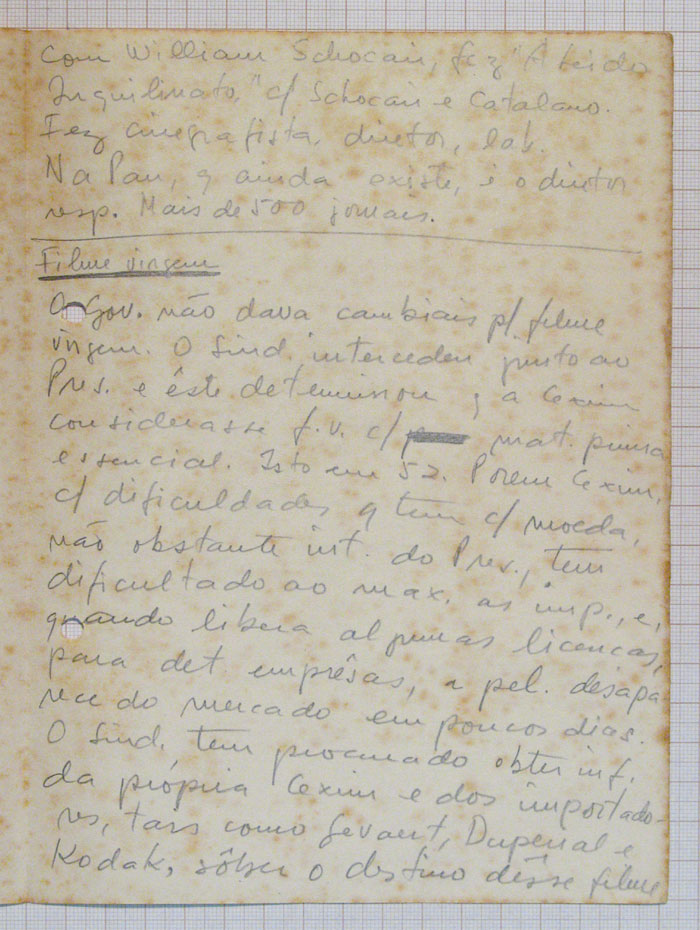 com William Schocair, fez "A lei do
Inquilinato," c/ Schocair e Catalano.
Fez cinegrafista, diretor, lab.
Na Pan, q ainda existe, é o diretor
resp. Mais de 500 jornais.
Filme virgem
O Gov. não dava cambiais p/ filme
virgem. O Sind. intercedeu junto ao
Pres. e êste determinou q a Cexim
considerasse f.v. c/ mat. prima
essencial. Isto em 52. Porem Cexim,
c/ dificuldades q tem c/ moeda,
não obstante int. do Pres., tem
dificultado ao max. as imp., e,
quando libera algumas licenças,
para det. emprêsas, a pel. desapa
rece do mercado em poucos dias.
O Sind. tem procurado obter inf.
da própria Cexim e dos importado-
res, tais como Gevaert, Duperial e
Kodak, sôbre o destino dêsse filme